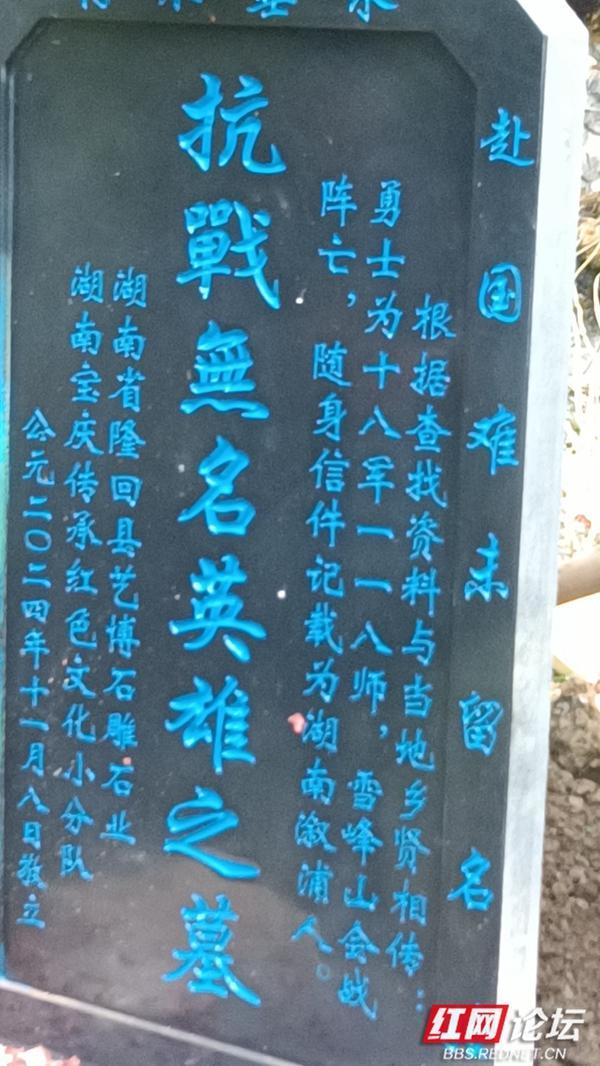 永垂
赴国难未留名
根据查找资料与当地乡贤相传：
勇士为十八军一一八师，雪峰山会战
阵亡，随身信件记载为湖南溆浦人。
抗戰無名英雄之墓
湖南省隆回县艺博石雕石业
湖南宝庆传承红色文化小分队
公元二〇二四年十一月八日敬立
红网论坛
BBS.REDNET.CN